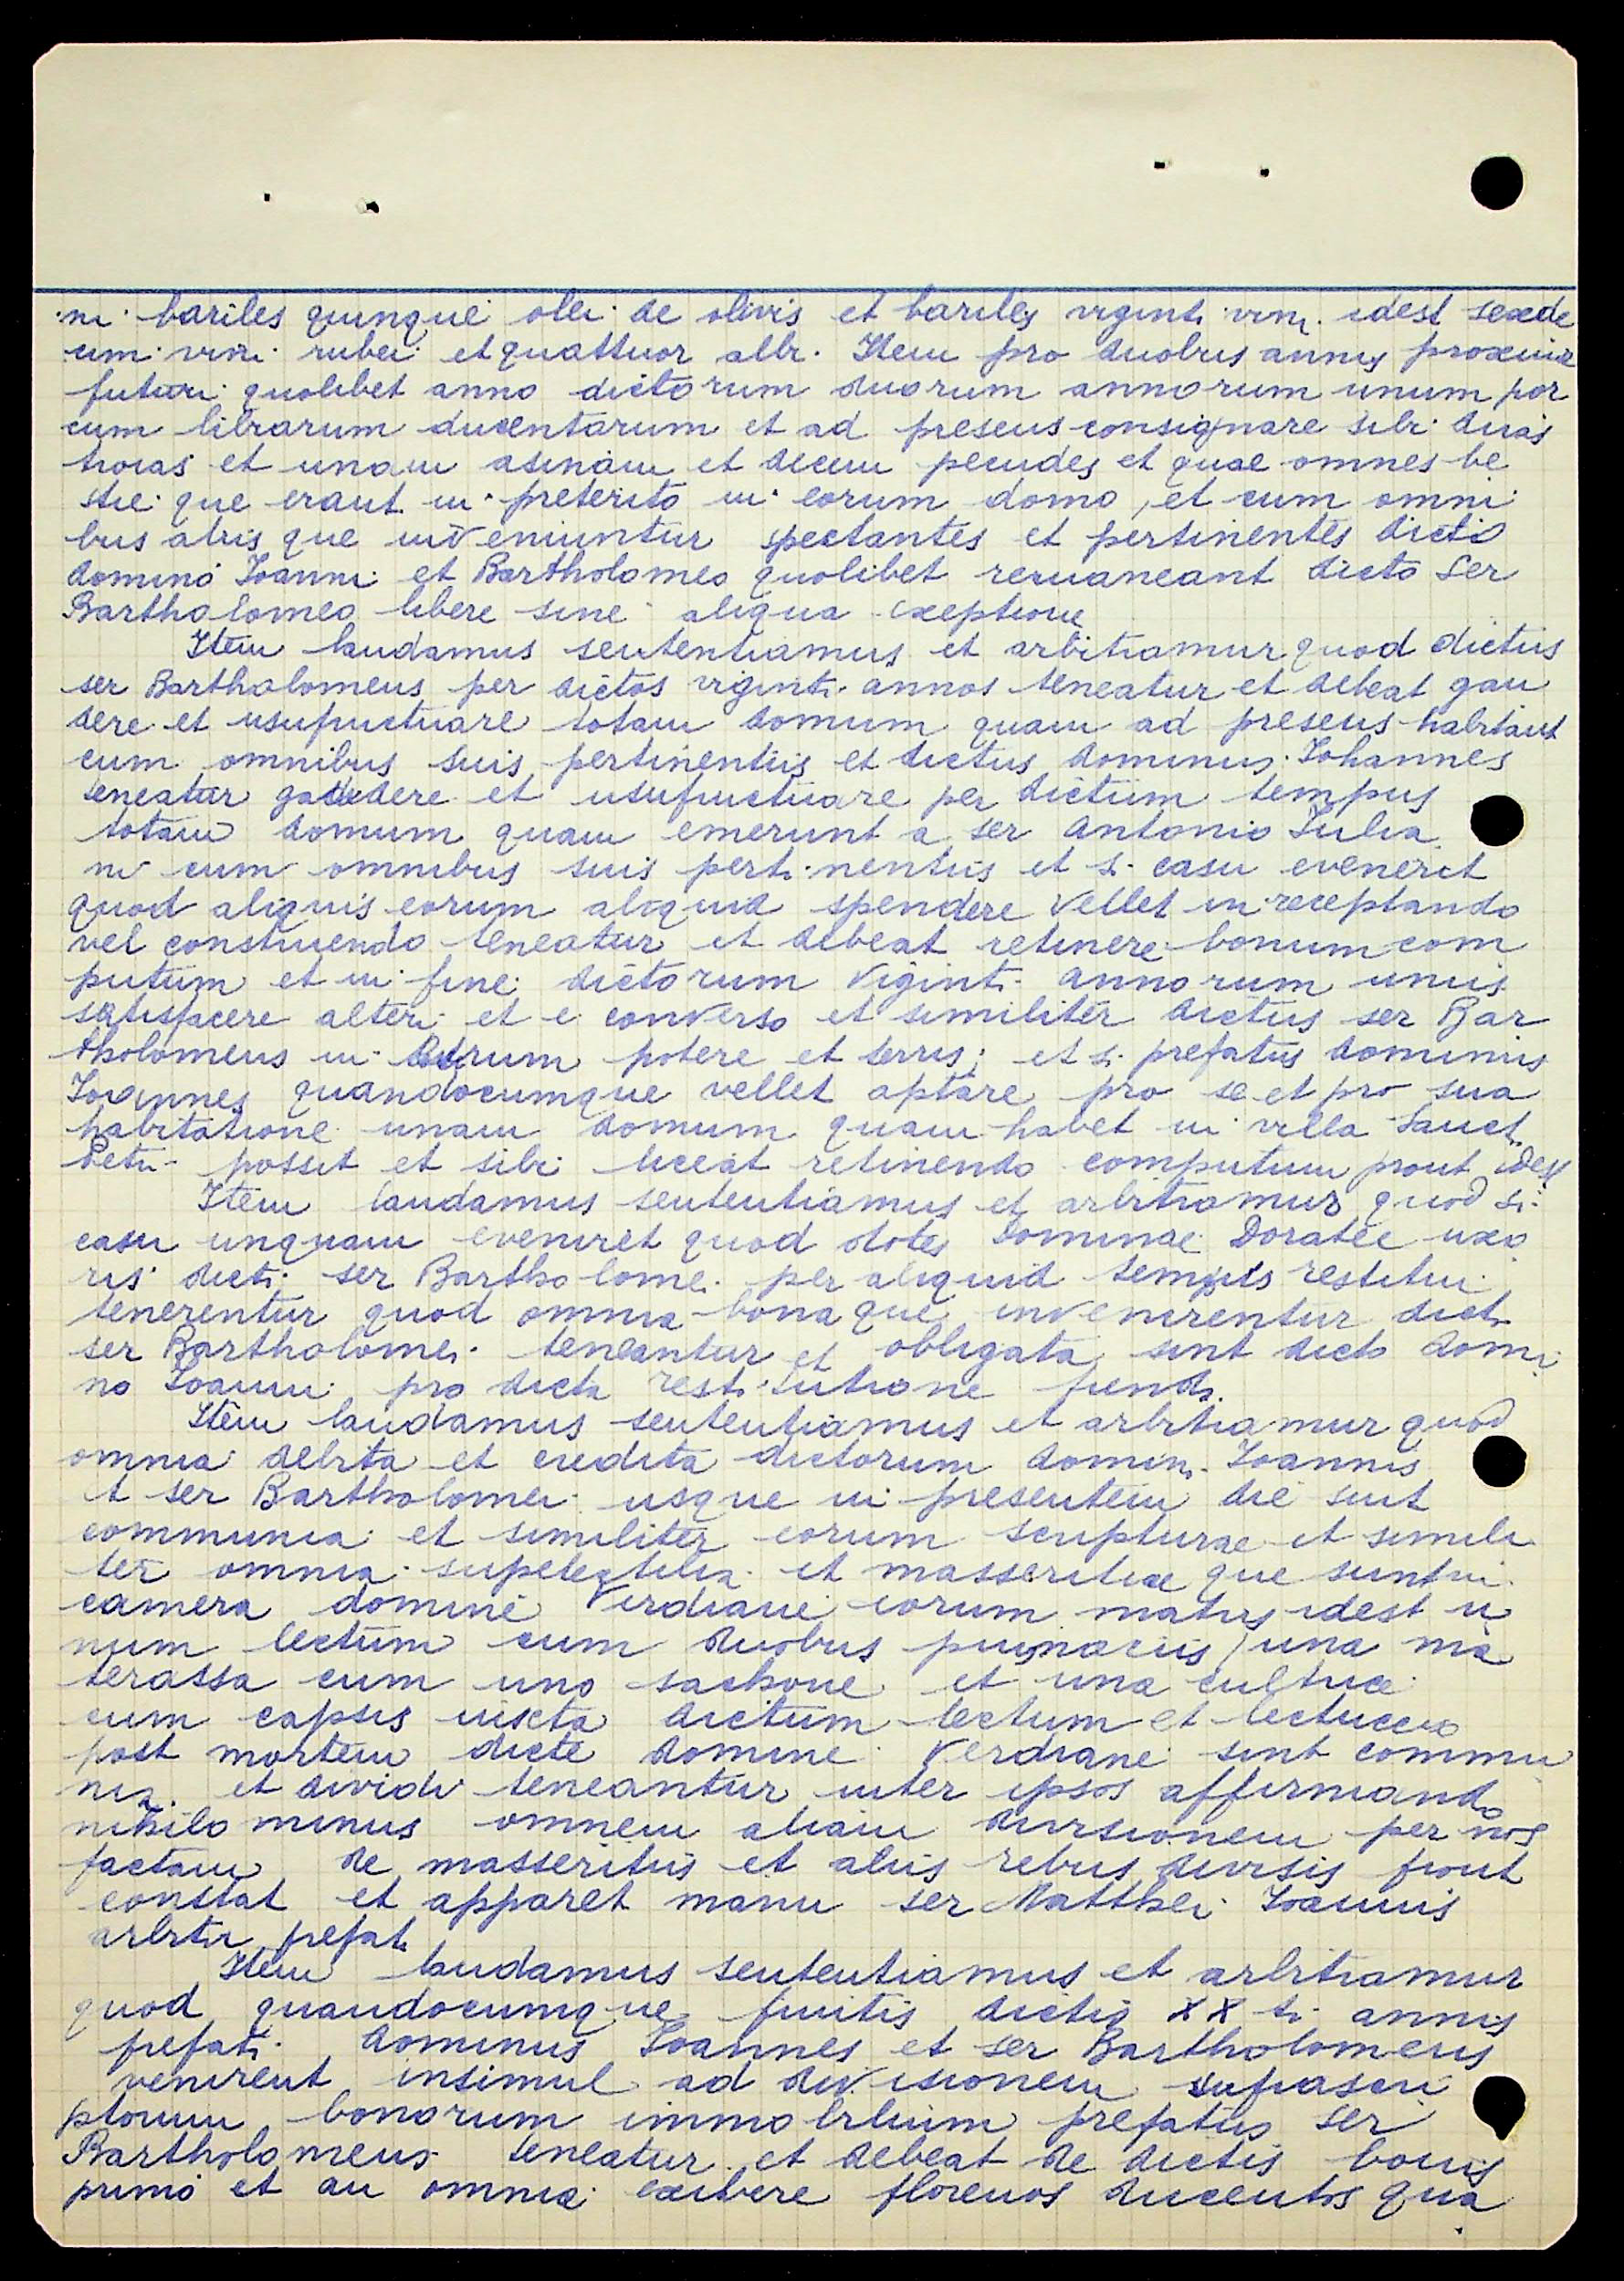 ni bariles quinque olei de olivis et bariles viginti vini idest sexde
cim vini rubei et quattuor albi. Item pro duobus annis proxime
futuri quolibet anno dictorum duorum annorum unum por
cum librarum ducentarum et ad presens consignare sibi duas
troias et unam asinam et decem pecudes et quae omnes be
stie que erant in preterito in eorum domo, et cum omni
bus aliis que inveniuntur spectantes et pertinentes dicto
domino Ioanni et Bartholomeo quolibet remaneant dicto ser
Bartholomeo libere sine aliqua exeptione
Item laudamus sententiamus et arbitramur quod dictus
ser Bartholomeus per dictos viginti annos teneatur et debeat gau
dere et usufructuare totam domum quam ad presens habitant
cum omnibus suis pertinentiis et dictus dominus Iohannes
teneatur gaudere et usufructuare per dictum tempus
totam domum quam emerunt a ser Antonio Iulia
ni cum omnibus suis pertinentiis et si casu eveneret
quod aliquis eorum aliquid spendere vellet in receptando
vel construendo teneatur et debeat retinere bonum com
putum et in fine dictorum viginti annorum unus
satisfacere alteri et e converso et similiter dictus ser Bar
tholomeus in potere et terris; et si prefatus dominus
Ioannes quandocumque vellet aptare pro se et pro sua
habitatione unam domum quam habet in villa Sancti
Petri possit et sibi liceat retinendo computum prout idest
Item laudamus sententiamus et arbitramur quod si
casu unquam eveniret quod dotes dominae Doratee uxo
ris dicti ser Bartholomei per aliquid tempus restitui
tenerentur quod omnia bona que invenirentur dicti
ser Bartholomei teneantur et obligata sint dicto domi
no Ioanni pro dicta restitutione fienda.
Item laudamus sententiamus et arbitramur quod
omnia debita et credita dictorum domini Ioannis
et ser Bartholomei usque in presentem die sint
communia et similiter eorum scripturae et simili
ter omnia supelectilia et masseritiae que sunt in
camera domine Verdiane eorum matris idest u
num lectum cum duobus piumaciis una ma
terassa cum uno sachone et una cultrice
cum capsis iuxta dictum lectum et lectuccio
post mortem dicte domine Verdiane sint commu
nia et dividi teneantur inter ipsos affirmando
nihilo minus omnem aliam divisionem per nos
factam de masseritiis et aliis rebus divisis prout
constat et apparet manu ser Matthei Ioannis
arbitri prefati
Item laudamus sententiamus et arbitramur
quod quandocumque finitis dictis XX ti annis
prefati dominus Ioannes et ser Bartholomeus
venirent insimul ad divisionem suprascri
ptorum bonorum immobilium prefatus ser
Bartholomeus teneatur et debeat de dictis bonis
primo et an omnia exibere florenos ducentos qua